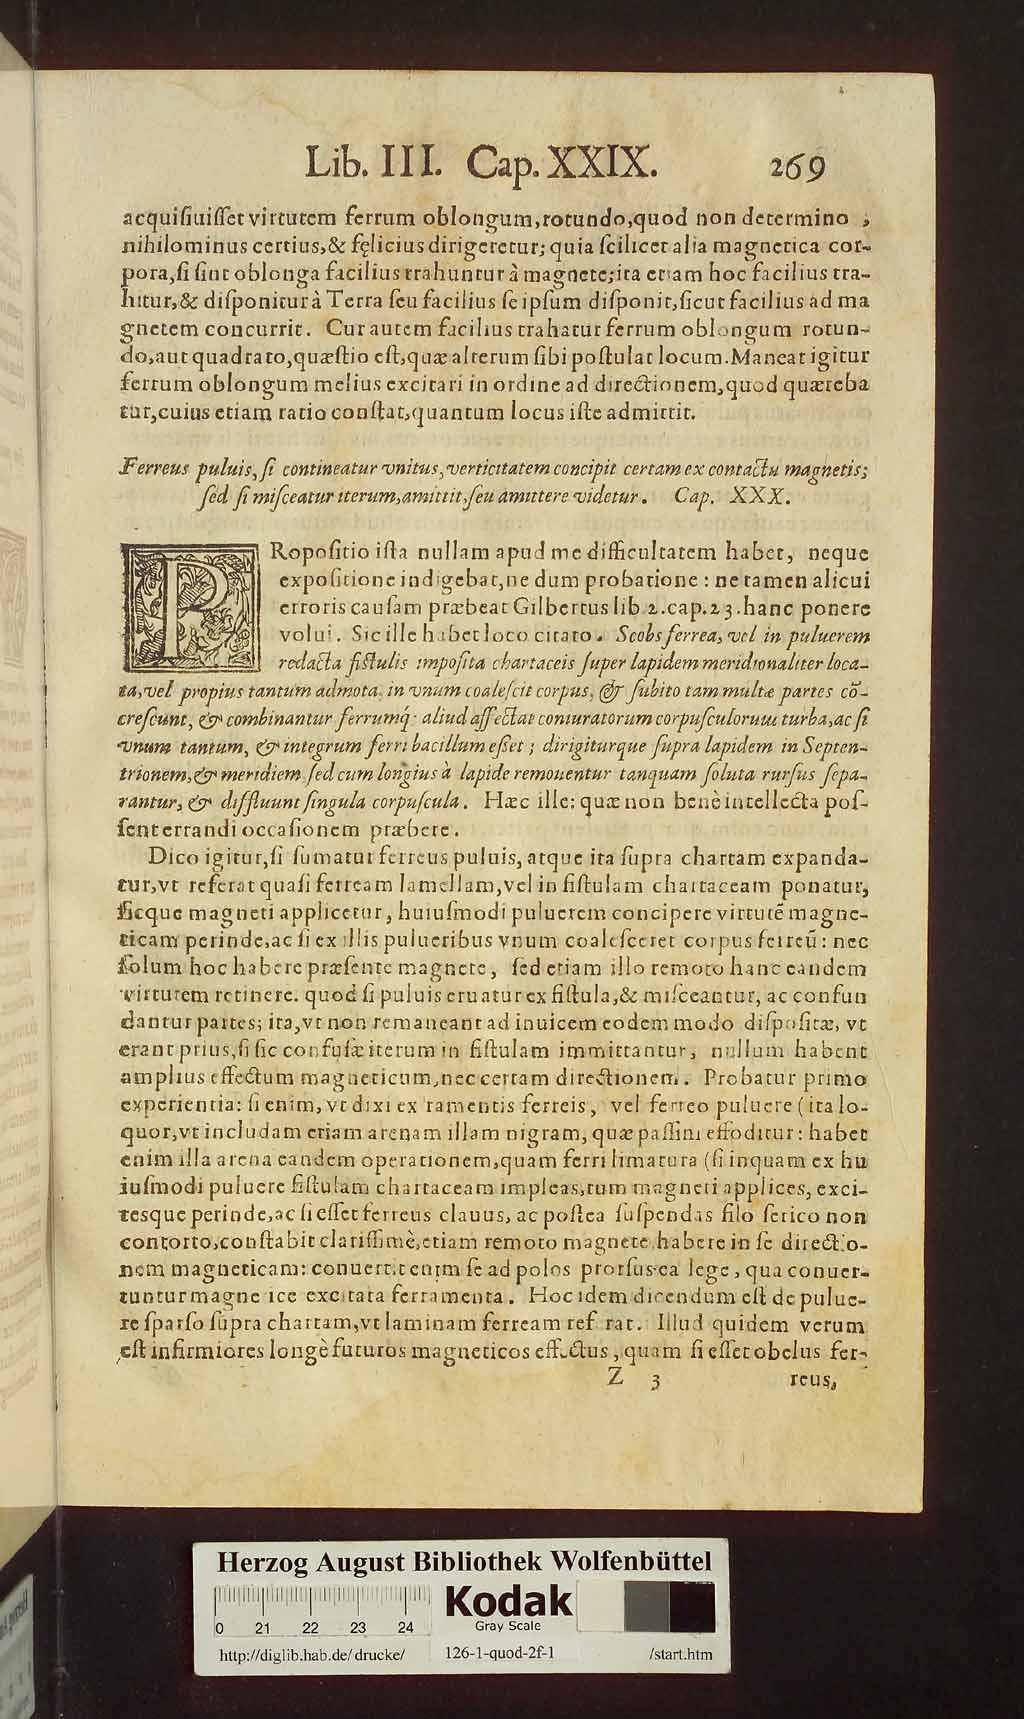 Lib. III. Cap. XXIX. 269
acquiſiuiſſet virtutem ferrum oblongum, rotundo, quod non determino,
nihilominus certius, & fęlicius dirigeretur; quia ſcilicet alia magnetica cor-
pora, ſi ſint oblonga facilius trahuntur à magnete; ita etiam hoc facilius tra-
hitur, & diſponitur à Terra ſeu facilius ſe ipſum diſponit, ſicut facilius ad ma
gnetem concurrit. Cur autem facilius trahatur ferrum oblongum rotun-
do, aut quadrato, quæſtio eſt, quæ alterum ſibi poſtulat locum. Maneat igitur
ferrum oblongum melius excitari in ordine ad directionem, quod quæreba
tur, cuius etiam ratio conſtat, quantum locus iſte admittit.
Ferreus puluis, ſi contineatur vnitus, verticitatem concipit certam ex contactu magnetis;
ſed ſi miſceatur iterum, amittit, ſeu amittere videtur. Cap. XXX.
PRopoſitio iſta nullam apud me difficultatem habet, neque
expoſitione indigebat, ne dum probatione: ne tamen alicui
erroris cauſam præbeat Gilbertus lib. 2. cap. 23. hanc ponere
volui. Sic ille habet loco citato. Scobs ferrea, vel in puluerem
redacta fiſtulis impoſita chartaceis ſuper lapidem meridionaliter loca-
ta, vel propius tantum admota. in vnum coaleſcit corpus, & ſubito tam multæ partes cō-
creſcunt, & combinantur ferrumq́; aliud affectat coniuratorum corpuſculorum turba, ac ſi
vnum tantum, & integrum ferri bacillum eſſet; dirigiturque ſupra lapidem in Septen-
trionem, & meridiem. ſed cum longius à lapide remouentur tanquam ſoluta rurſus ſepa-
rantur, & diffluunt ſingula corpuſcula. Hæc ille: quæ non benè intellecta poſ-
ſent errandi occaſionem præbere.
Dico igitur, ſi ſumatur ferreus puluis, atque ita ſupra chartam expanda-
tur, vt referat quaſi ferream lamellam, vel in fiſtulam chartaceam ponatur,
ſicque magneti applicetur, huiuſmodi puluerem concipere virtutē magne-
ticam perinde, ac ſi ex illis pulueribus vnum coaleſceret corpus ferreū: nec
ſolum hoc habere præſente magnete, ſed etiam illo remoto hanc eandem
virtutem retinere. quod ſi puluis eruatur ex fiſtula, & miſceantur, ac confun
dantur partes; ita, vt non remaneant ad inuicem eodem modo diſpoſitæ, vt
erant prius, ſi ſic confuſæ iterum in fiſtulam immittantur, nullum habent
amplius effectum magneticum, nec certam directionem. Probatur primo
experientia: ſi enim, vt dixi ex ramentis ferreis, vel ferreo puluere (ita lo-
quor, vt includam etiam arenam illam nigram, quæ paſſim effoditur: habet
enim illa arena eandem operationem, quam ferri limatura (ſi inquam ex hu
iuſmodi puluere fiſtulam chartaceam impleas, tum magneti applices, exci-
tesque perinde, ac ſi eſſet ferreus clauus, ac poſtea ſuſpendas filo ſerico non
contorto, conſtabit clariſſimè, etiam remoto magnete habere in ſe directio-
nem magneticam: conuertit enim ſe ad polos prorſus ea lege, qua conuer-
tuntur magne ice excitata ferramenta. Hoc idem dicendum eſt de pulue-
re ſparſo ſupra chartam, vt laminam ferream ref rat. Illud quidem verum
eſt infirmiores longè futuros magneticos effectus, quam ſi eſſet obelus fer-
Z 3 reus,
Herzog August Bibliothek Wolfenbüttel
Kodak
Gray Scale
0 21 22 23 24
http://diglib.hab.de/drucke/ 126-1-quod-2f-1 /start.htm